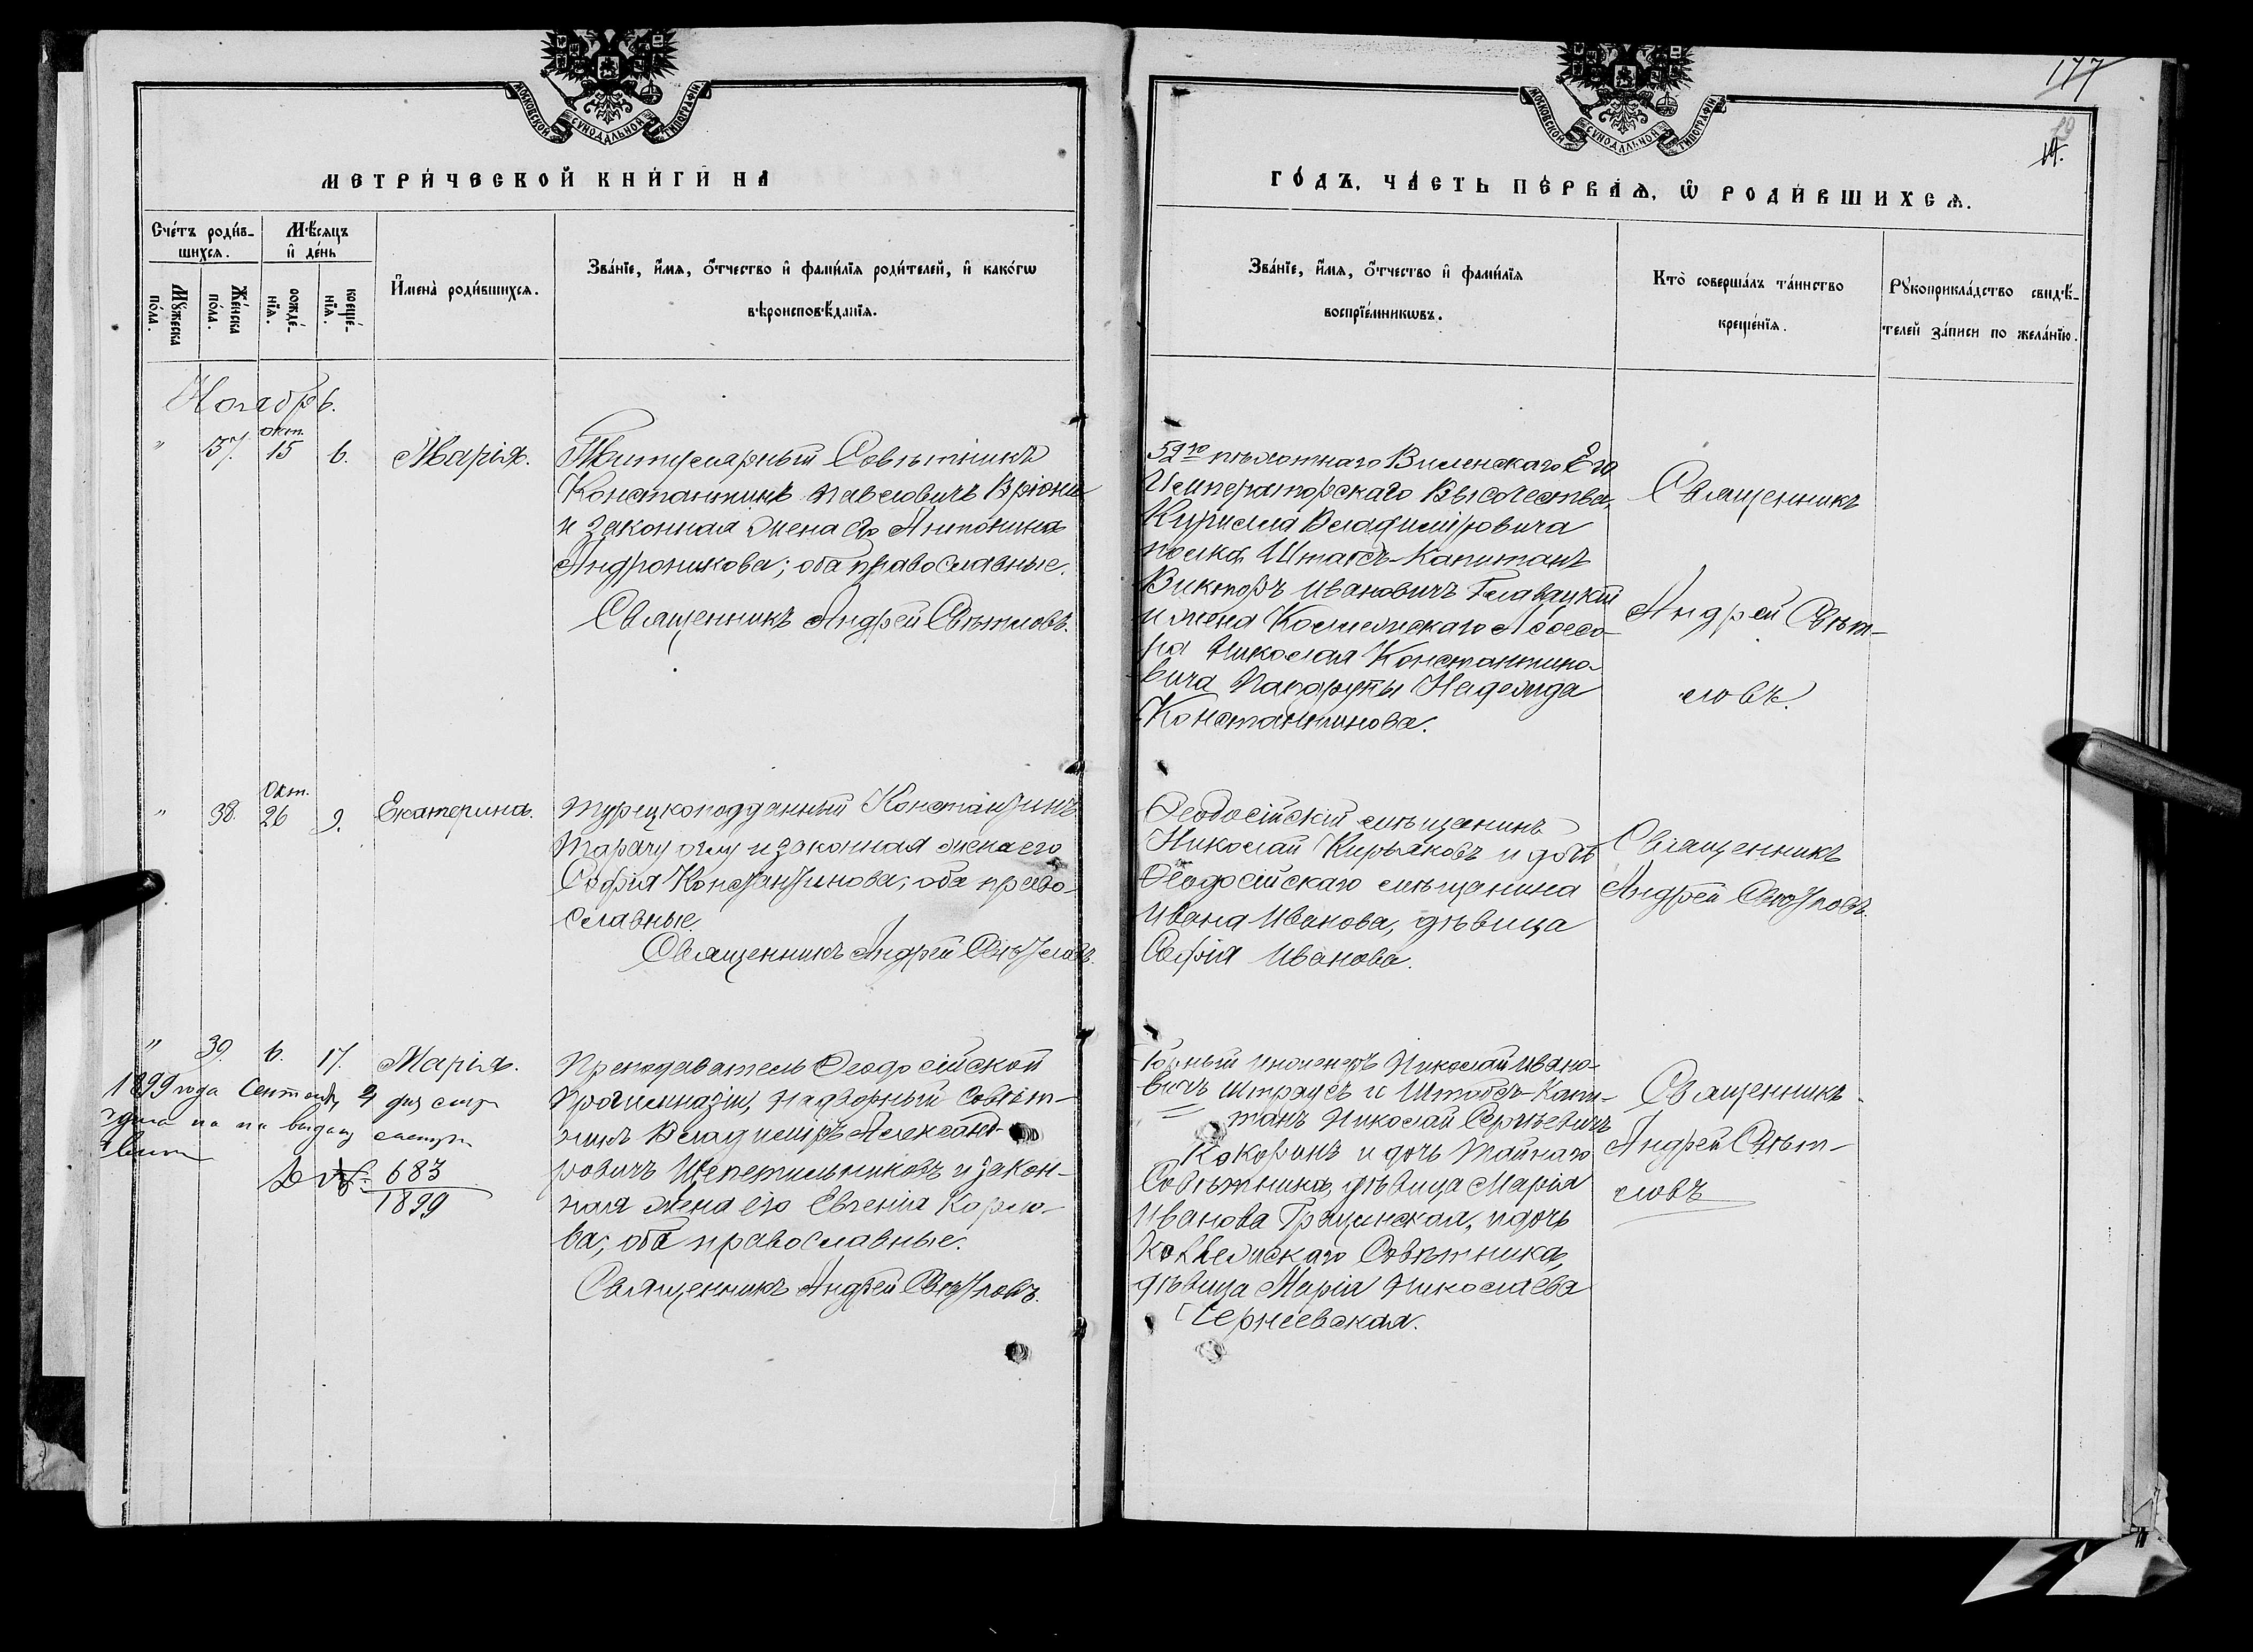 МОСКОВСКОЙ СѴНОДАЛЬНОЙ ТИПОГРАФІИ
МЕТРИ́ЧЕСКОЙ КНИ́ГИ НА
Сче́тъ роди́в-
шихся.
Мѣ́сяцъ
и҆ де́нь
Мꙋ́жеска
по́ла.
Же́нска
по́ла.
рожде́-
нїя.
креще́-
нїя.
И҆мена̀ роди́вшихся.
Зва́нїе, и҆́мя, ѻ҆́тчество и҆ фами́лїя роди́телей, и҆ како́гѡ
вѣроисповѣ́данїя.
Ноябрь.
" 37. окт. 15 6. Марія.
Титулярный Совѣтникъ
Константинъ Павловичъ
и законная жена его Антонина
Андроникова; оба православные.
Священникъ Андрей Свѣтловъ.
" 38. Окт. 26 9. Екатерина.
Турецкоподданный Константинъ
оглу и законная жена его
Софія Константинова; оба право-
славные.
Священникъ Андрей Свѣтловъ.
" 39. 6. 17. Марія.
1899 года
№ 683
1899
Преподаватель Ѳеодосійской
прогимназіи, Надворный Совѣт-
никъ Владиміръ Александ-
ровичъ Щепетильниковъ и закон-
ная жена его Евгенія Карло-
ва; оба православные.
Священникъ Андрей Свѣтловъ.
177
МОСКОВСКОЙ СѴНОДАЛЬНОЙ ТИПОГРАФІИ
ГО́ДЪ, ЧА́СТЬ ПЕ́РВАЯ, Ѡ҆ РОДИ́ВШИХСЯ.
Зва́нїе, и҆́мя, ѻ҆́тчество и҆ фами́лїя
воспрїе́мникѡвъ.
Кто̀ соверша́лъ та́инство
креще́нїя.
Рꙋкоприкла́дство свидѣ́-
телей за́писи по жела́нїю.
59го пѣхотнаго Виленскаго Его
Императорскаго Высочества
Кирилла Владиміровича
полка Штабсъ-Капитанъ
Викторъ Ивановичъ Главацкій
и жена Коллежскаго Ассесо-
ра Николая Константино-
вича Папафуты Надежда
Константинова.
Священникъ
Андрей Свѣт-
ловъ.
Ѳеодосійскій мѣщанинъ
Николай Кирьяковъ и дочь
Ѳеодосійскаго мѣщанина
Ивана Иванова, дѣвица
Софія Иванова.
Священникъ
Андрей Свѣтловъ.
Горный инженеръ Николай Ивано-
вичъ Штраусъ и Штабсъ-Капи-
танъ Николай Сергѣевичъ
Кокоринъ и дочь Тайнаго
Совѣтника, дѣвица Марія
Иванова Гращинская, и дочь
Коллежскаго Совѣтника,
дѣвица Марія Николаева
Чернеевская.
Священникъ
Андрей Свѣт-
ловъ